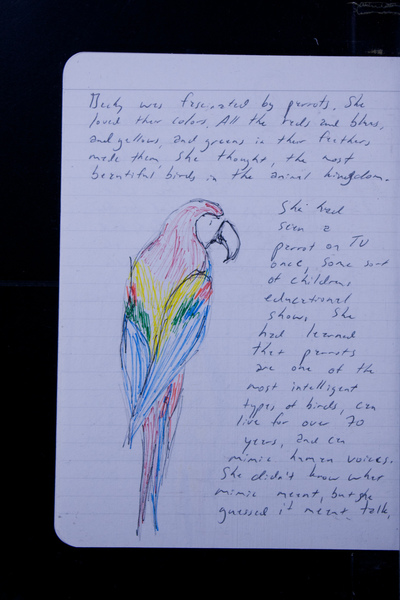 Becky was fascinated by parrots. She
loved their colors. All the reds and blues,
and yellows, and greens in their feathers
made them, she thought, the most
beautiful birds in the animal kingdom.
She had
seen a
parrot on TV
once, some sort
of childrens
educational
show. She
had learned
that parrots
are one of the
most intelligent
types of birds, can
live for over 70
years, and can
mimic human voices.
She didn't know what
mimic meant, but she
guessed it meant talk,